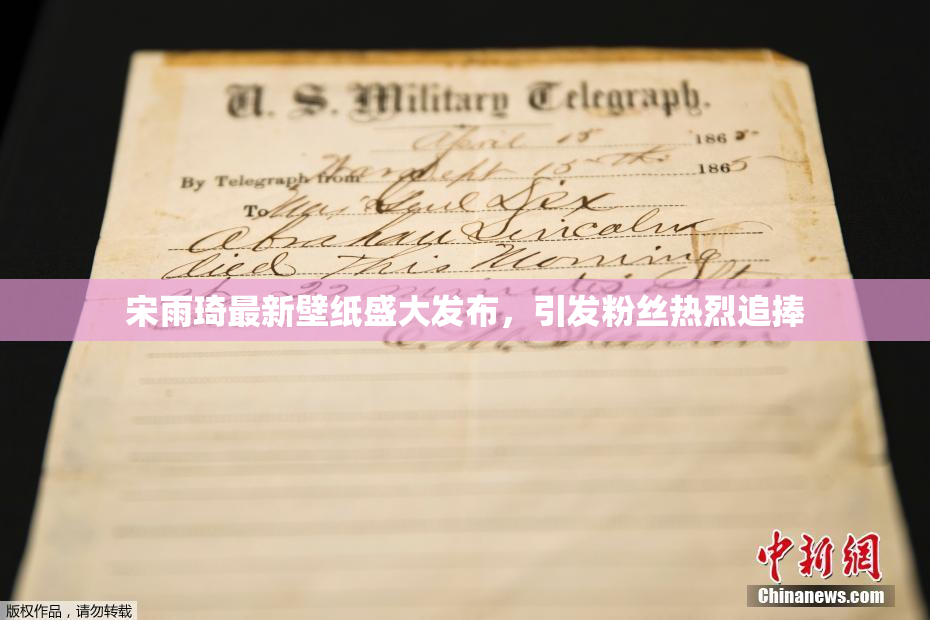 U. S. Military Telegraph.
April 15 1865
By Telegraph from War Dept 15th 1865
To Maj Genl Dix
Abraham Lincoln
died This Morning
at 22 minutes after
宋雨琦最新壁纸盛大发布，引发粉丝热烈追捧
E. M. Stanton
中新网
Chinanews.com
版权作品，请勿转载